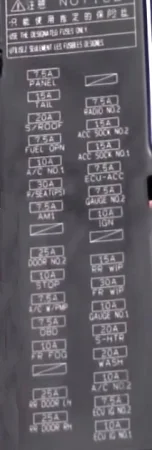 注意 NOTICE
只能使用指定的保险丝
USE THE DESIGNATED FUSES ONLY
UTILISEZ SEULEMENT LES FUSIBLES DESIGNES
7.5A
PANEL
15A
TAIL
7.5A
RADIO NO.2
20A
S/ROOF
15A
ACC SOCK NO.2
7.5A
FUEL OPN
15A
ACC SOCK NO.1
10A
A/C NO.1
7.5A
ECU-ACC
30A
P/SEAT(PS)
7.5A
GAUGE NO.2
7.5A
AM1
10A
IGN
25A
DOOR NO.2
15A
RR WIP
10A
STOP
30A
FR WIP
7.5A
10A
GAUGE NO.1
7.5A
OBD
20A
S-HTR
10A
FR FOG
20A
WASH
10A
A/C NO.2
25A
RR DOOR LH
7.5A
ECU IG NO.2
25A
RR DOOR RH
10A
ECU IG NO.1